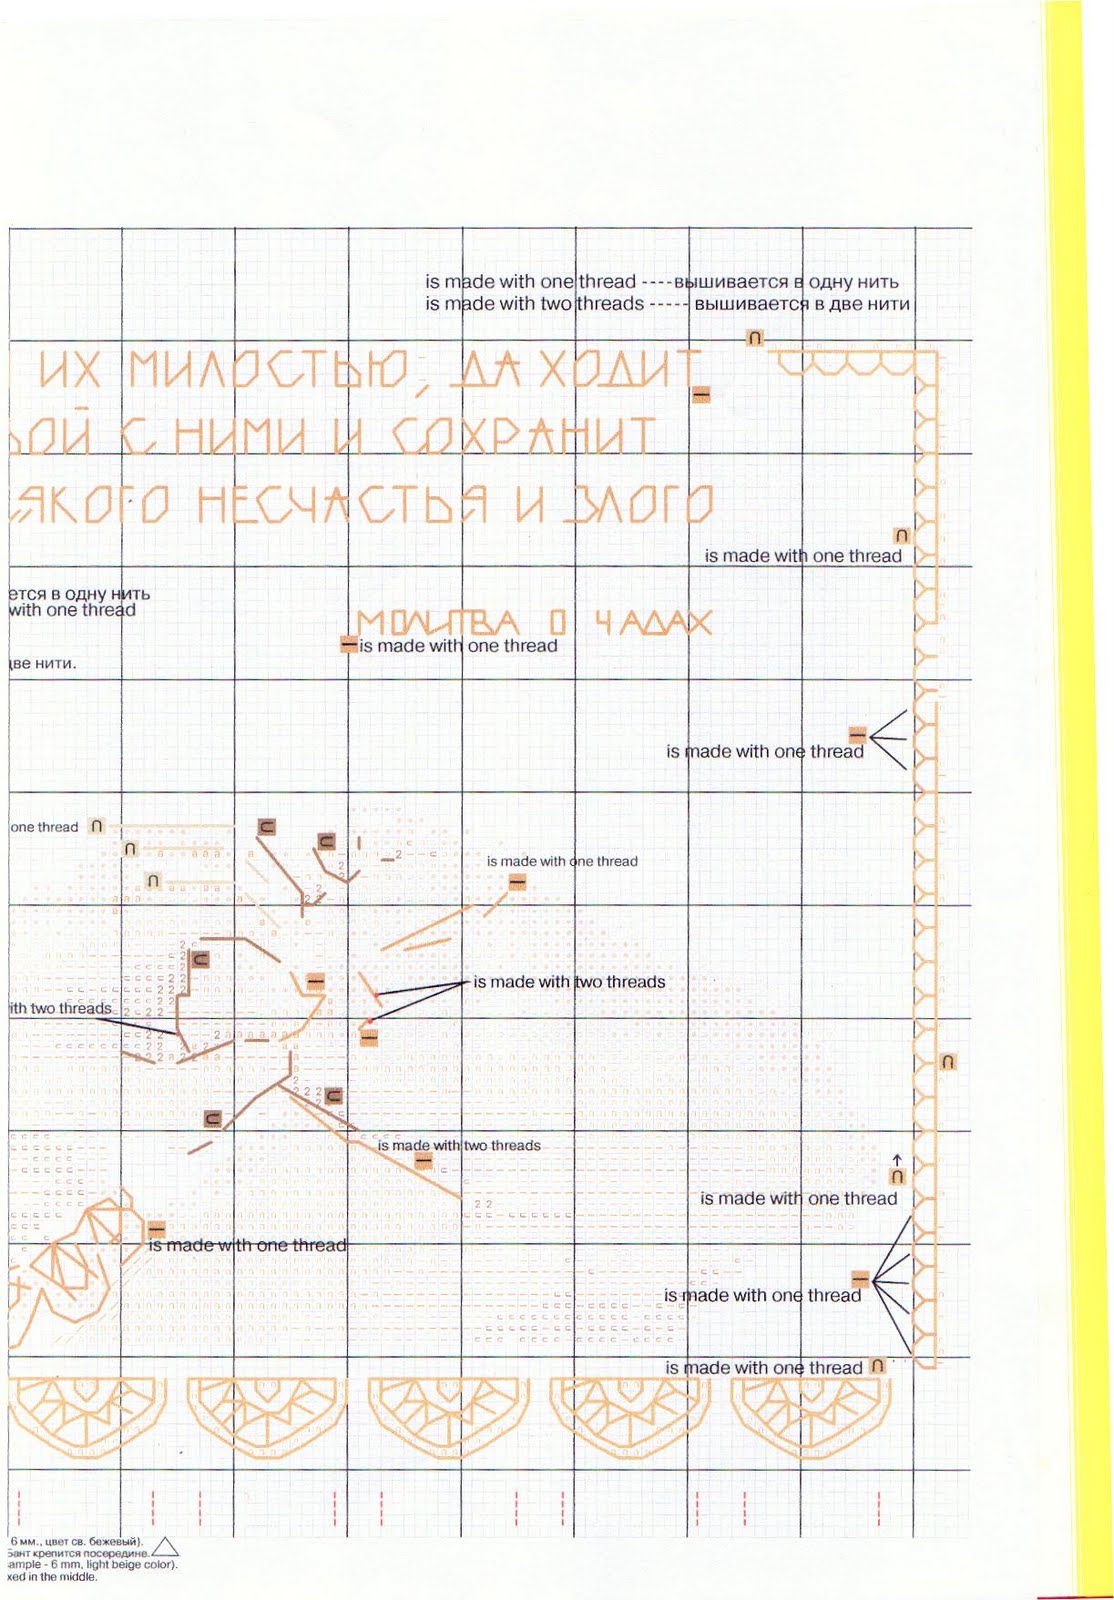 is made with one thread ----вышивается в одну нить
is made with two threads ----- вышивается в две нити
ИХ МИЛОСТЬЮ, ДА ХОДИТ
ОЙ С НИМИ И СОХРАНИТ
ЯКОГО НЕСЧАСТЬЯ И ЗЛОГО
is made with one thread
ется в одну нить
with one thread
МОЛИТВА О ЧАДАХ
is made with one thread
две нити.
is made with one thread
one thread
is made with one thread
is made with two threads
ith two threads
is made with two threads
is made with one thread
is made with one thread
is made with one thread
is made with one thread
6 мм., цвет св. бежевый).
Бант крепится посередине.
ample - 6 mm, light beige color).
xed in the middle.